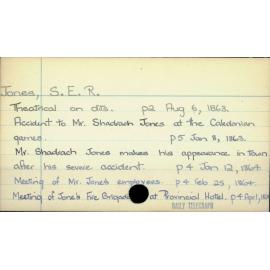 Jones, S. E. R.
Theatrical on dits. p2 Aug 6, 1863.
Accident to Mr. Shadrach Jones at the Caledonian
games. p5 Jan 8, 1863.
Mr. Shadrach Jones makes his appearance in Town
after his severe accident. p4 Jan 12, 1864.
Meeting of Mr. Jone's employees. p4 Feb 25, 1864.
Meeting of Jone's Fire Brigade at Provincial Hotel. p4 April,
DAILY TELEGRAPH